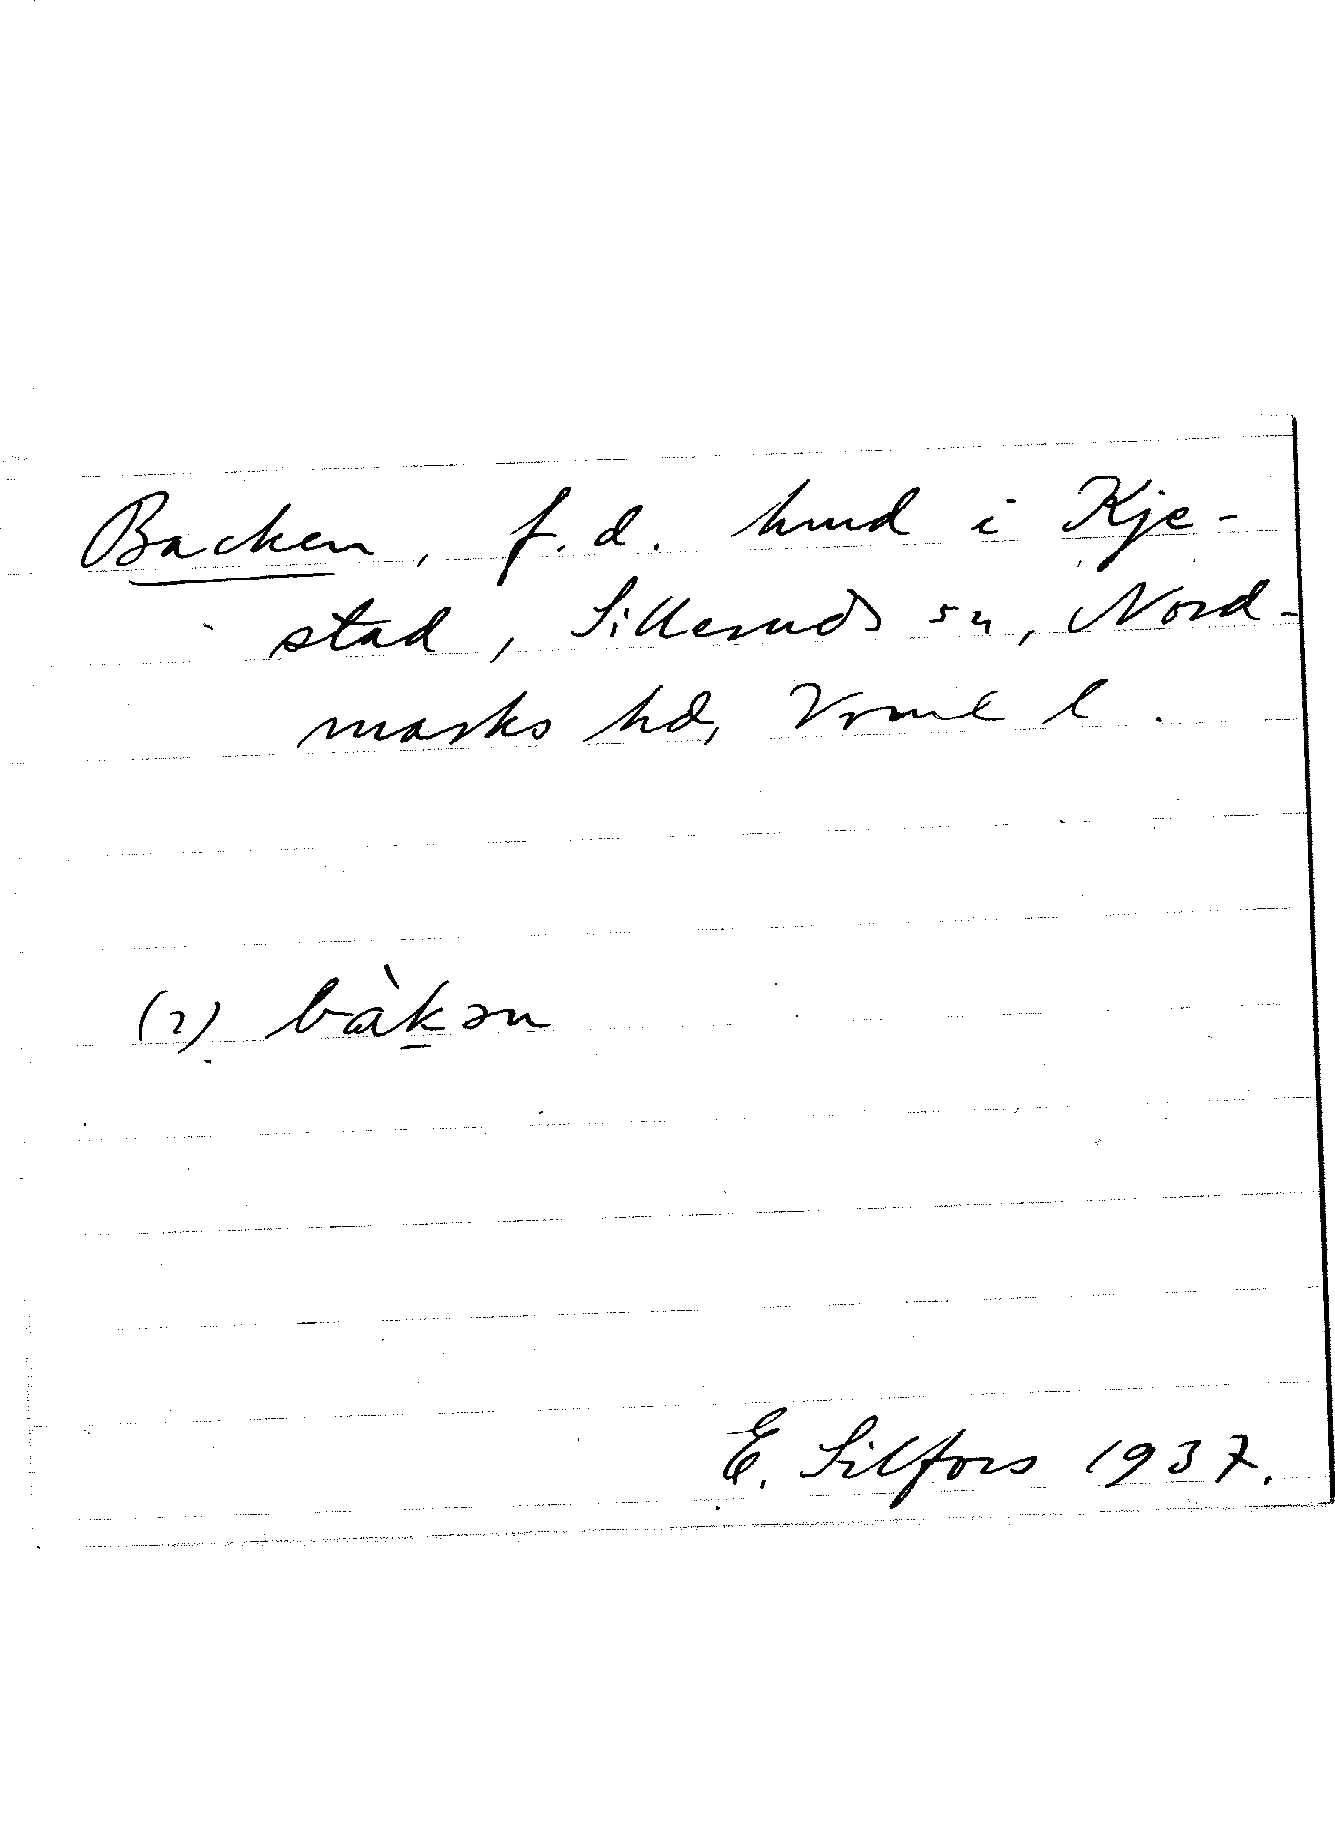 Backen, f.d. hmd i Kje-
stad, Silleruds sn, Nord-
marks hd, Vrml l.
(2) bàk̲ən
E. Silfors 1937.